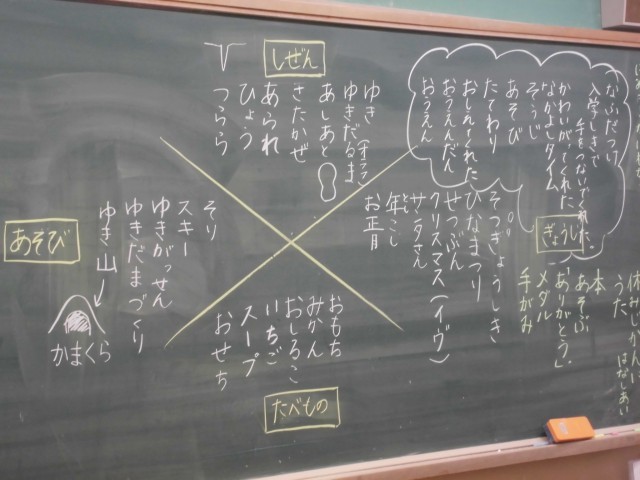 しぜん
ゆき
ゆきだるま
あしあと
きたかぜ
あられ
ひょう
つらら
ぎょうじ
そつぎょうしき
ひなまつり
せつぶん
クリスマス(イヴ)
サンタさん
年こし
とし
お正月
入学しきで
手をつないでくれた。
かわいがってくれた
なかよしタイム
そうじ
あそび
たてわり
おしえてくれた
おうえんだん
おうえん
うた
はなしあい
本
あそぶ
「ありがとう」
メダル
手がみ
たべもの
おもち
みかん
おしるこ
いちご
スープ
おせち
あそび
そり
スキー
ゆきがっせん
ゆきだまづくり
ゆき山
かまくら